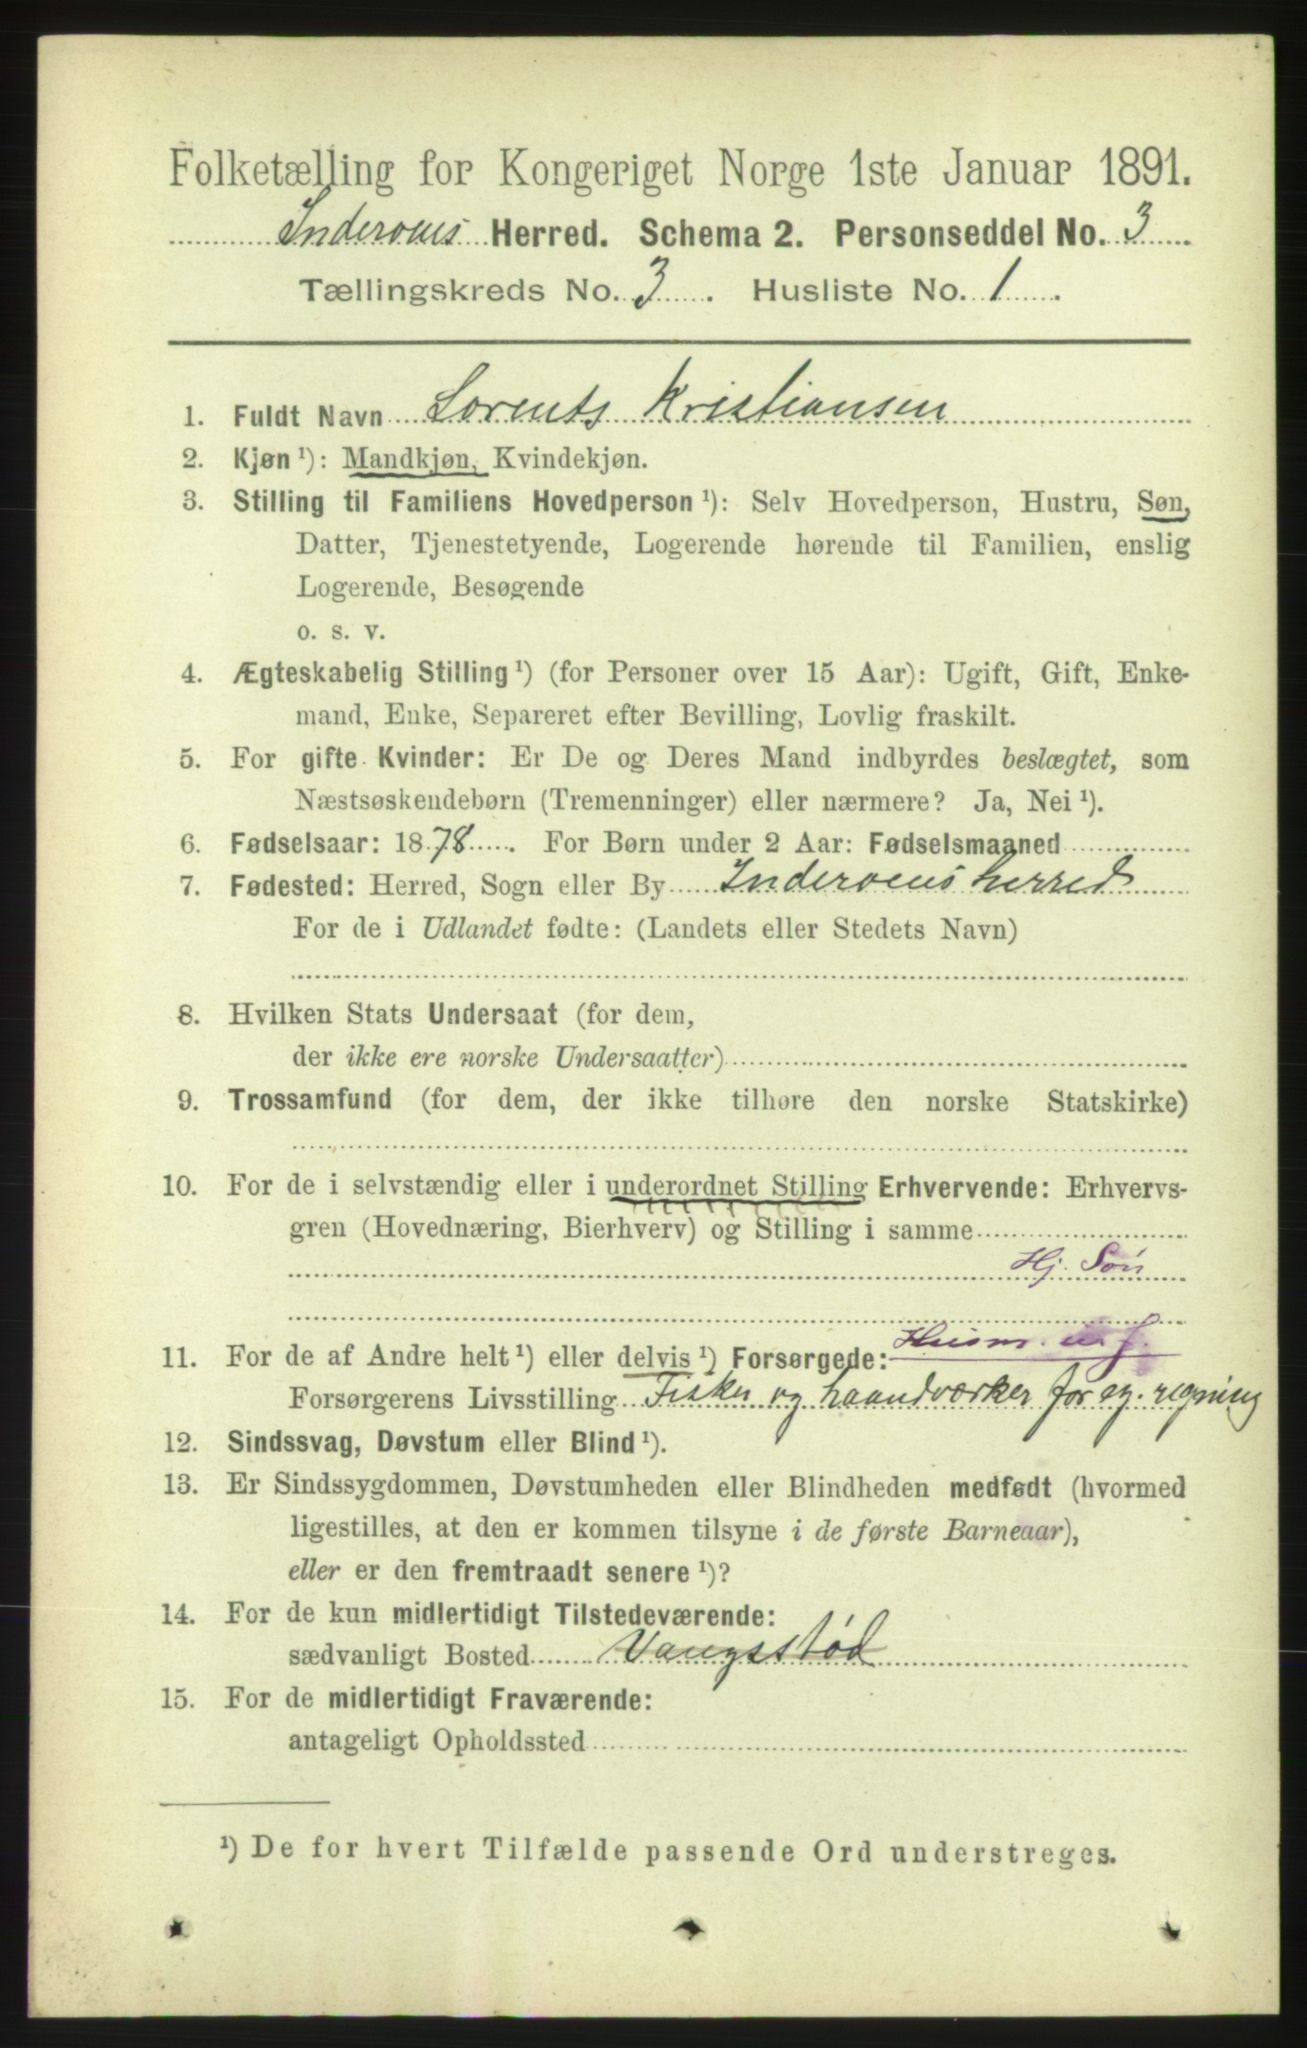 Folketælling for Kongeriget Norge 1ste Januar 1891.
Inderøens Herred. Schema 2. Personseddel No. 3
Tællingskreds No. 3. Husliste No. 1.
1. Fuldt Navn Lorents Kristiansen
2. Kjøn ¹): Mandkjøn, Kvindekjøn.
3. Stilling til Familiens Hovedperson ¹): Selv Hovedperson, Hustru, Søn,
Datter, Tjenestetyende, Logerende hørende til Familien, enslig
Logerende, Besøgende
o. s. v.
4. Ægteskabelig Stilling ¹) (for Personer over 15 Aar): Ugift, Gift, Enke-
mand, Enke, Separeret efter Bevilling, Lovlig fraskilt.
5. For gifte Kvinder: Er De og Deres Mand indbyrdes beslægtet, som
Næstsøskendebørn (Tremenninger) eller nærmere? Ja, Nei ¹).
6. Fødselsaar: 1878. For Børn under 2 Aar: Fødselsmaaned
7. Fødested: Herred, Sogn eller By Inderøens herred
For de i Udlandet fødte: (Landets eller Stedets Navn)
8. Hvilken Stats Undersaat (for dem,
der ikke ere norske Undersaatter)
9. Trossamfund (for dem, der ikke tilhøre den norske Statskirke)
10. For de i selvstændig eller i underordnet Stilling Erhvervende: Erhvervs-
gren (Hovednæring, Bierhverv) og Stilling i samme
Hj. Søn
11. For de af Andre helt ¹) eller delvis ¹) Forsørgede: Husm. m j.
Forsørgerens Livsstilling Fisker og haandværker for eg. regning
12. Sindssvag, Døvstum eller Blind ¹).
13. Er Sindssygdommen, Døvstumheden eller Blindheden medfødt (hvormed
ligestilles, at den er kommen tilsyne i de første Barneaar),
eller er den fremtraadt senere ¹)?
14. For de kun midlertidigt Tilstedeværende:
sædvanligt Bosted Vangsstød
15. For de midlertidigt Fraværende:
antageligt Opholdssted
¹) De for hvert Tilfælde passende Ord understreges.